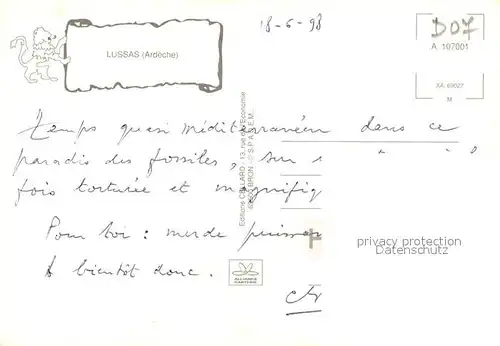 18-6-98
DO7
A 107001
LUSSAS (Ardèche)
XA 69027
M
Temps quasi méditerranéen dans ce
paradis des fossiles, sur
fois torturée et magnifiq
Pour toi : merde puissan
A bientôt donc.
Editions CELLARD - 13, rue de l'Economie
BRON © S.P.A.D.E.M.
ALLIANCE
CARTERIE
privacy protection
Datenschutz